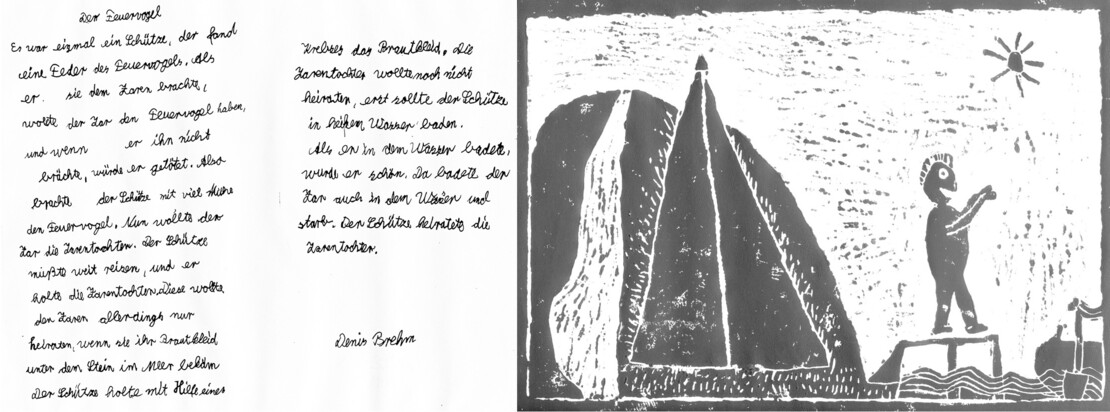 Der Feuervogel
Es war einmal ein Schütze, der fand
eine Feder des Feuervogels. Als
er. sie dem Zaren brachte,
wollte der Zar den Feuervogel haben,
und wenn er ihn nicht
brächte, würde er getötet. Also
brachte der Schütze mit viel Mühe
den Feuervogel. Nun wollte der
Zar die Zarentochter. Der Schütze
müßte weit reisen, und er
holte die Zarentochter. Diese wollte
den Zaren allerdings nur
heiraten, wenn sie ihr Brautkleid
unter dem Stein im Meer bekäm
Der Schütze holte mit Hilfe eines
Krebses das Brautkleid. Die
Zarentochter wollte noch nicht
heiraten, erst sollte der Schütze
in heißem Wasser baden.
Als er in dem Wasser badete,
wurde er schön. Da badete der
Zar auch in dem Wasser und
starb. Der Schütze heiratete die
Zarentochter.
Denis Brehm